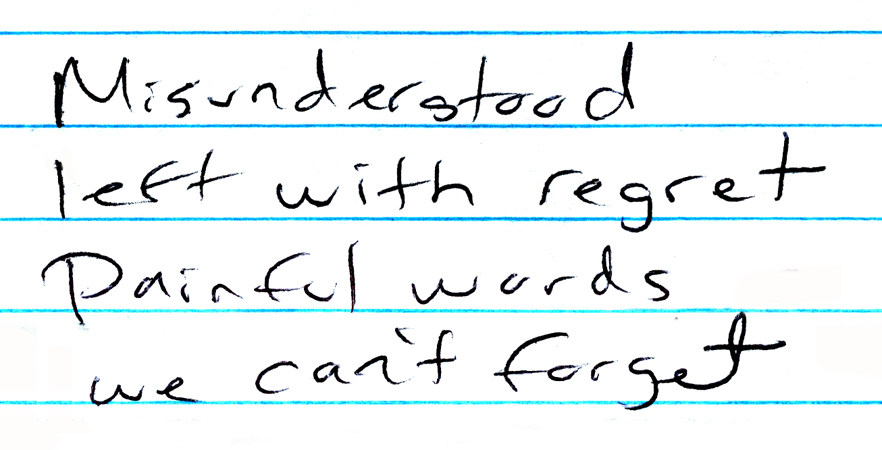 Misunderstood
left with regret
Painful words
we can't forget